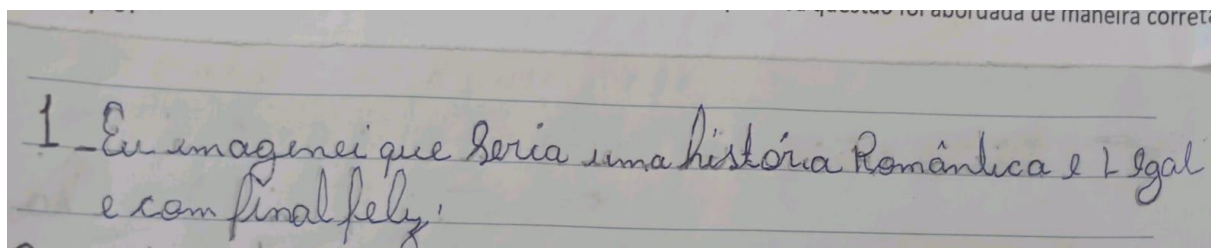 questão foi abordada de maneira corret
1 - Eu imaginei que seria uma história Romântica e Legal
e com final feliz.